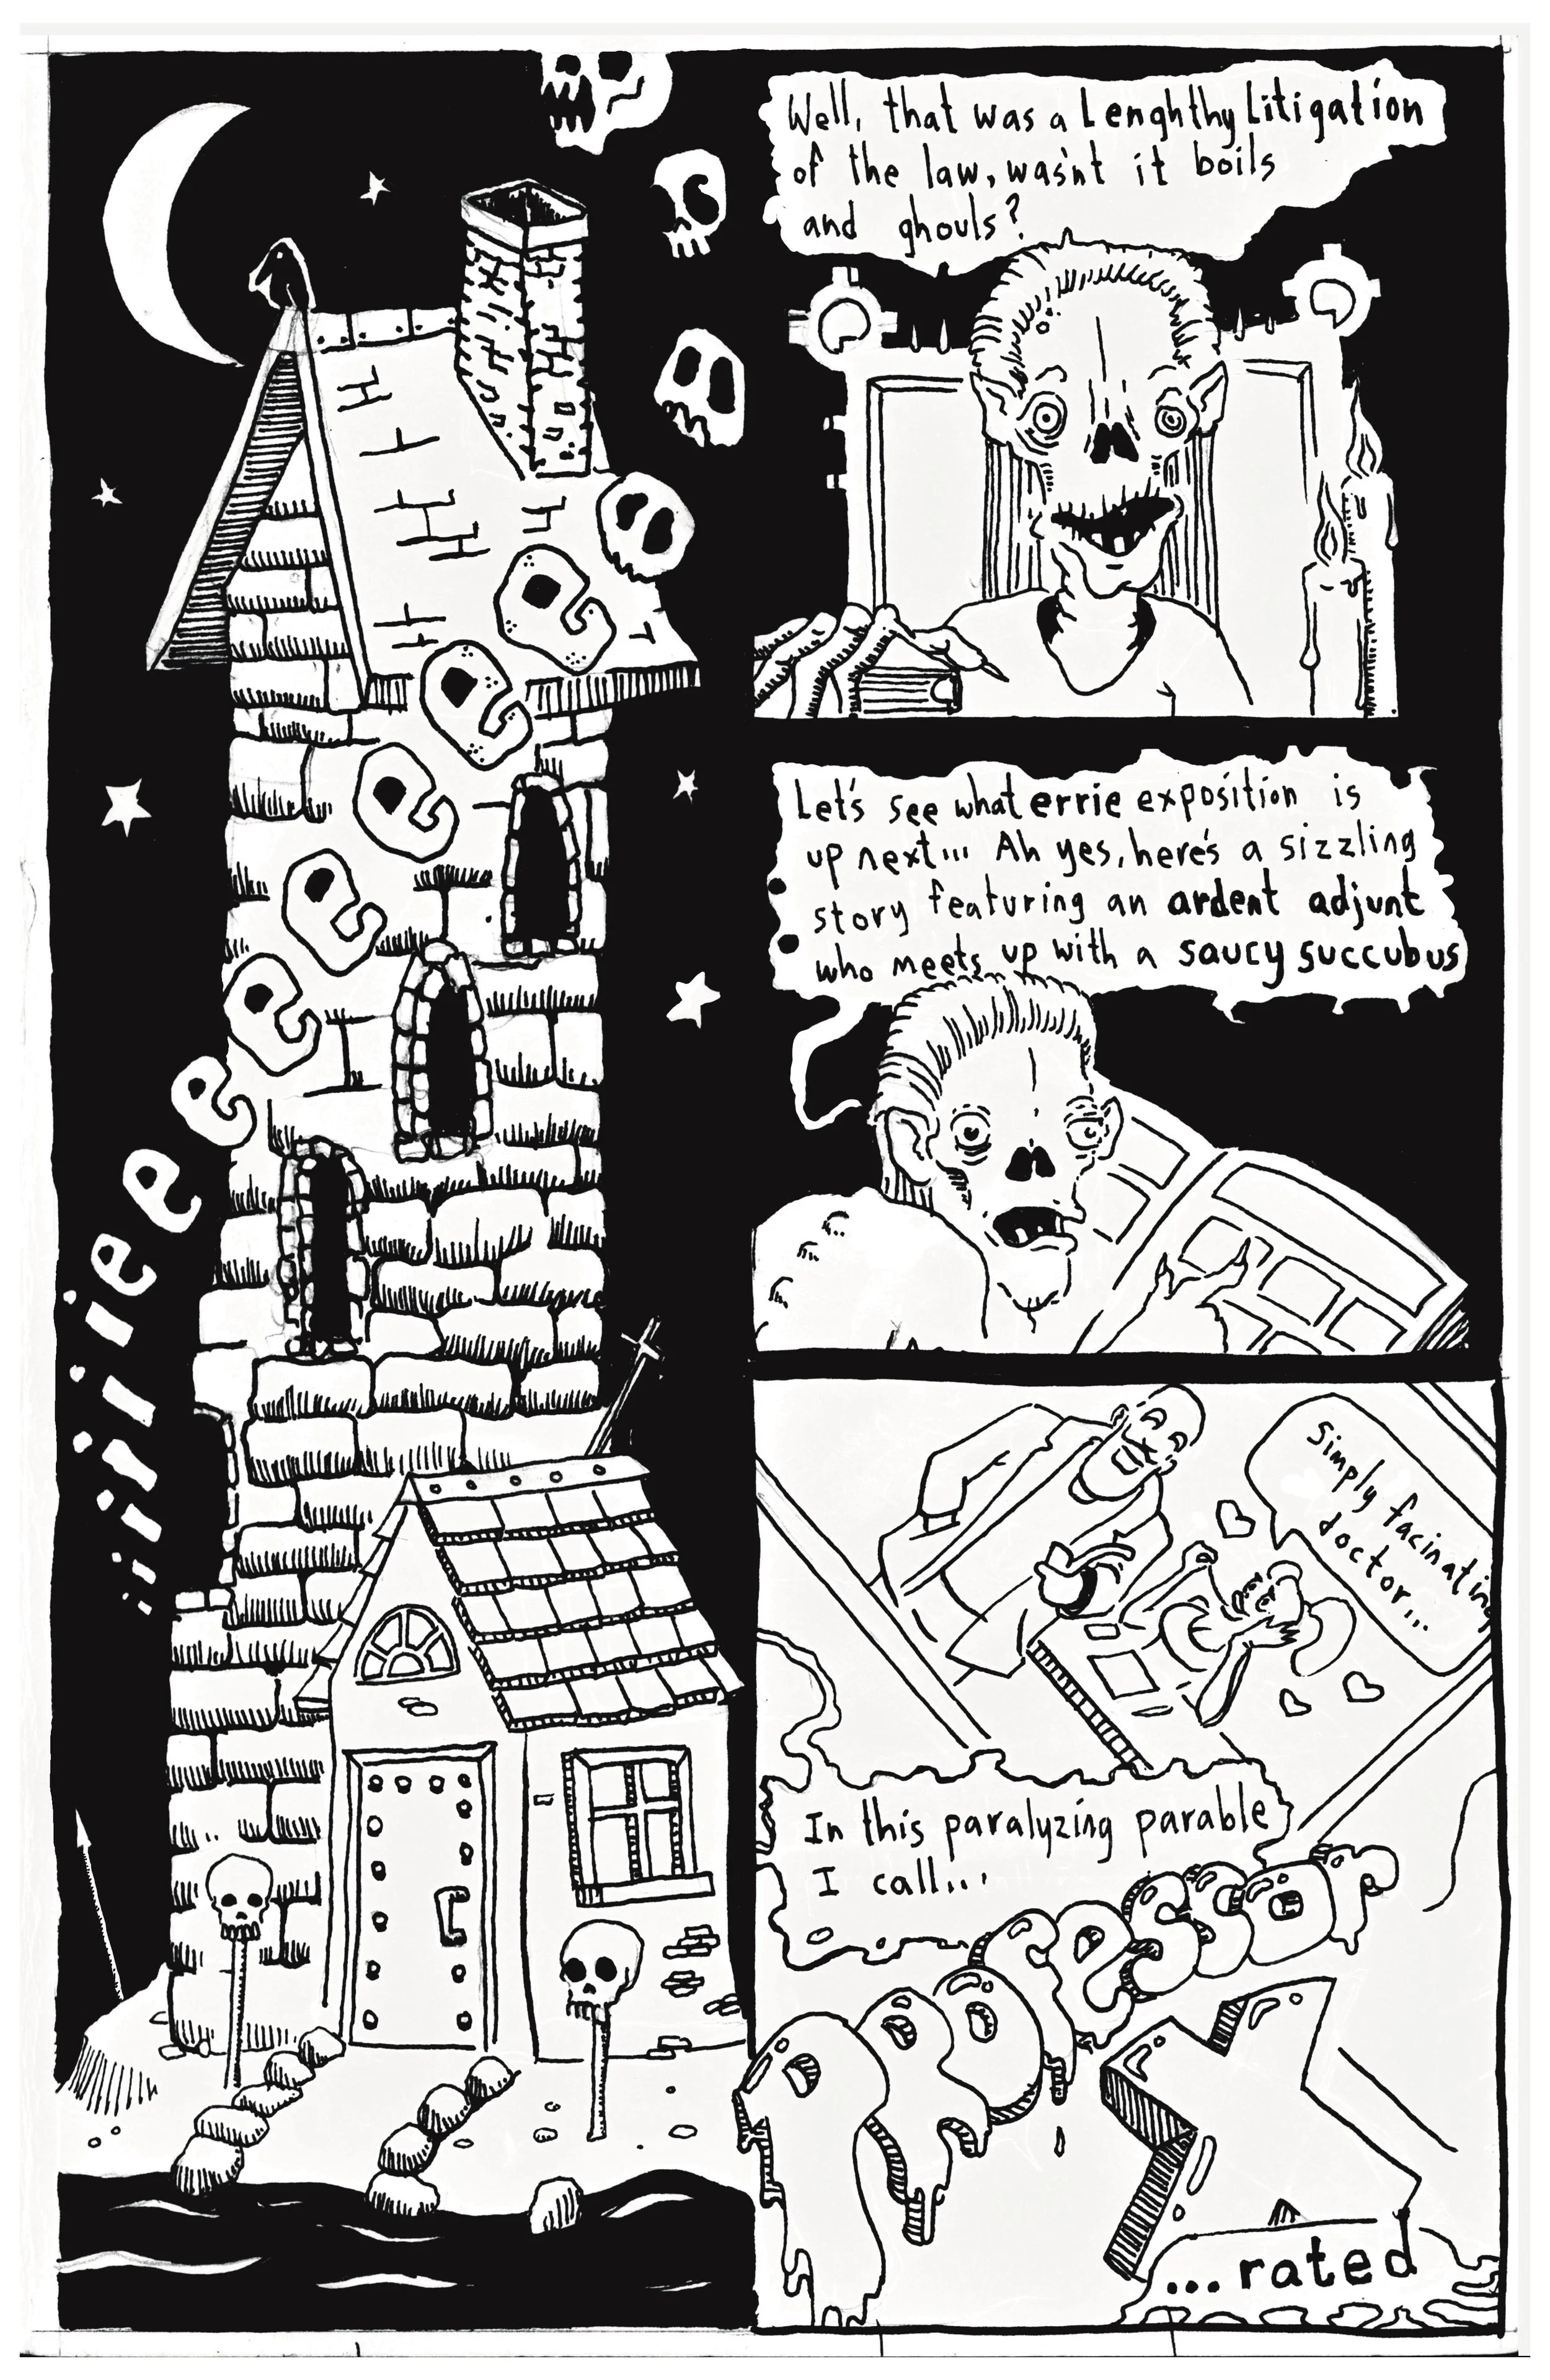 iiiiiieeeeeeee
Well, that was a Lenghthy Litigation
of the law, wasn't it boils
and ghouls?
Let's see what errie exposition is
up next... Ah yes, here's a sizzling
story featuring an ardent adjunt
who meets up with a saucy succubus
Simply facinating
doctor...
In this paralyzing parable
I call...
Professor
X
...rated